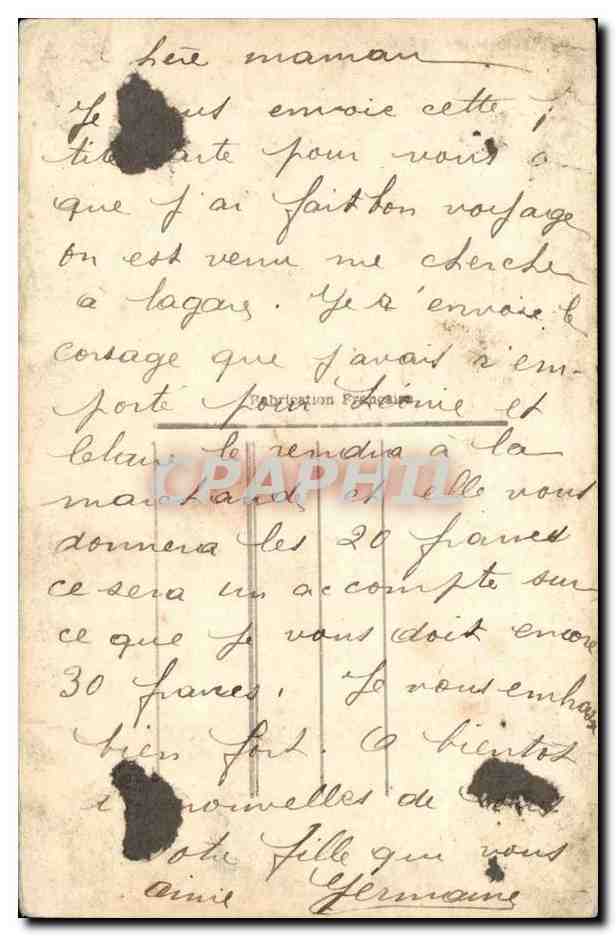 hère maman
Je vous envoie cette
tite carte pour vous
que j'ai fait bon voyage
on est venu me chercher
à la gare. Je r'envoie le
corsage que j'avais r'em-
porté pour Léonie et
Fabrication Française
le rendra à la
CPAPHIL
marchande et elle vous
donnera les 20 francs
ce sera un accompte sur
ce que je vous doit encore
30 francs. Je vous embrasse
bien fort. A bientot
nouvelles de vous
Votre fille qui vous
aime Germaine